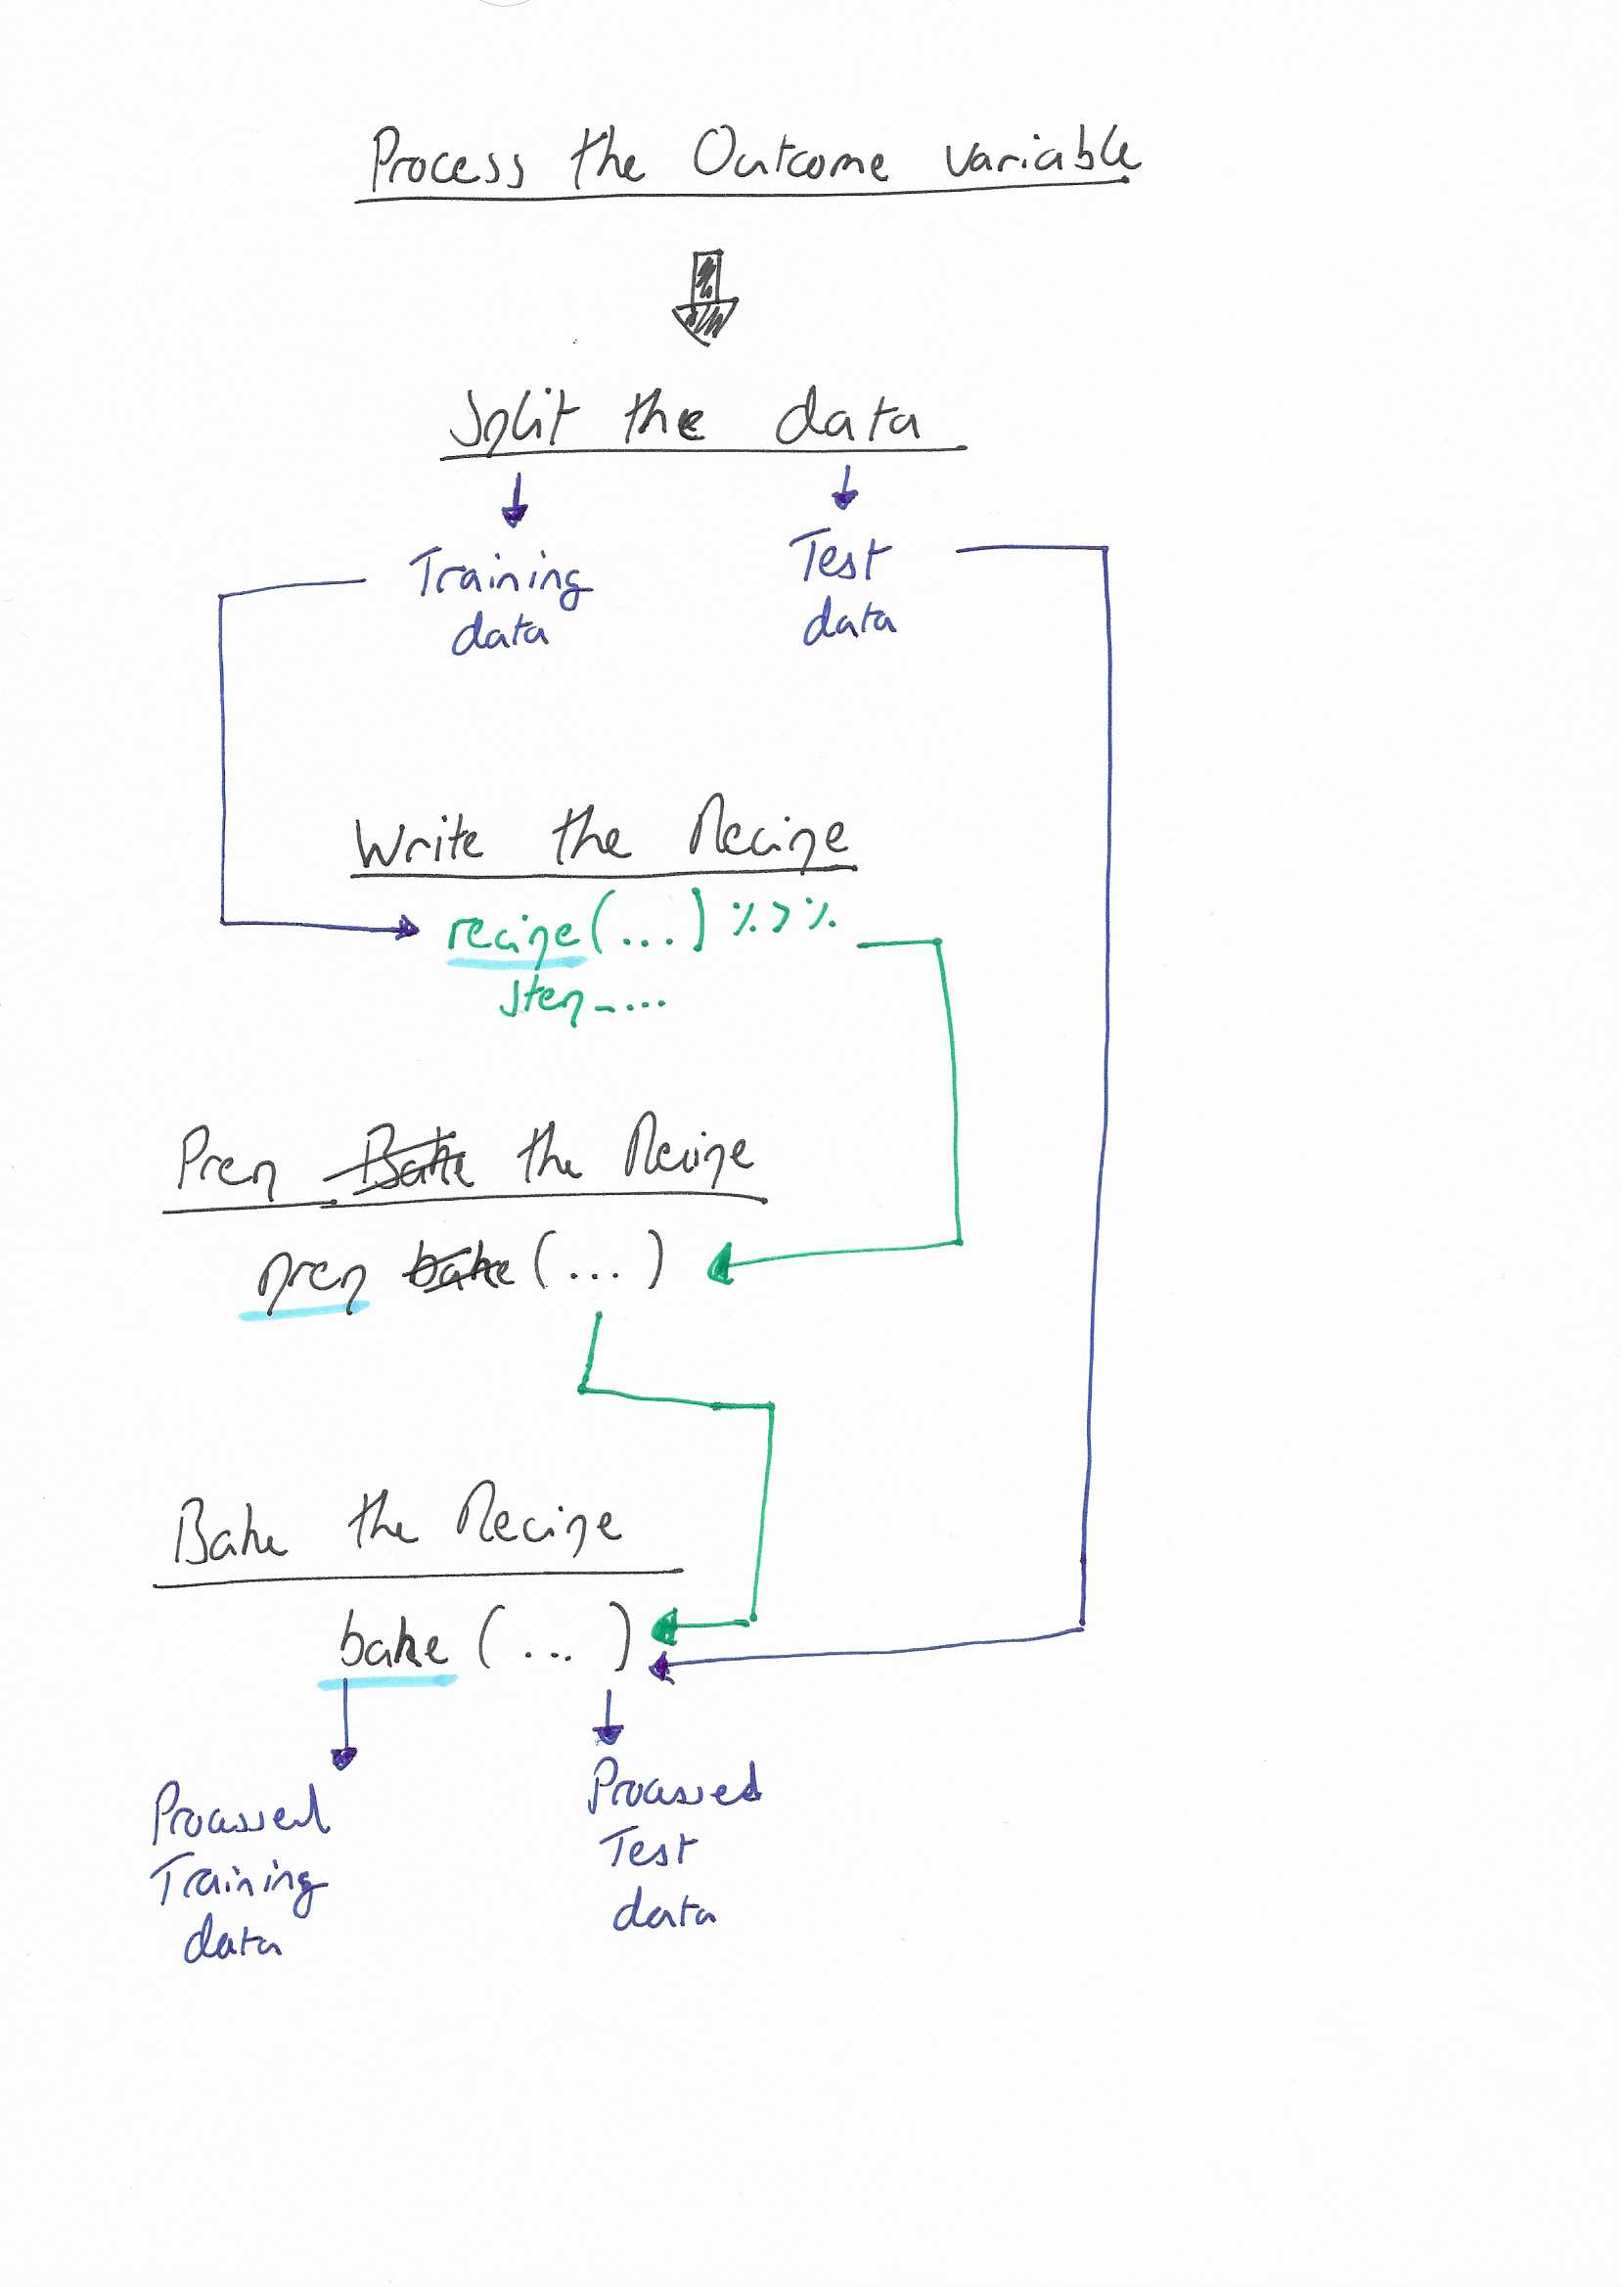 Process the Outcome variable
Split the data
Training data
Test data
Write the Recipe
recipe(...) %>%
step_...
Prep Bake the Recipe
prep bake (...)
Bake the Recipe
bake (...)
Processed Training data
Processed Test data